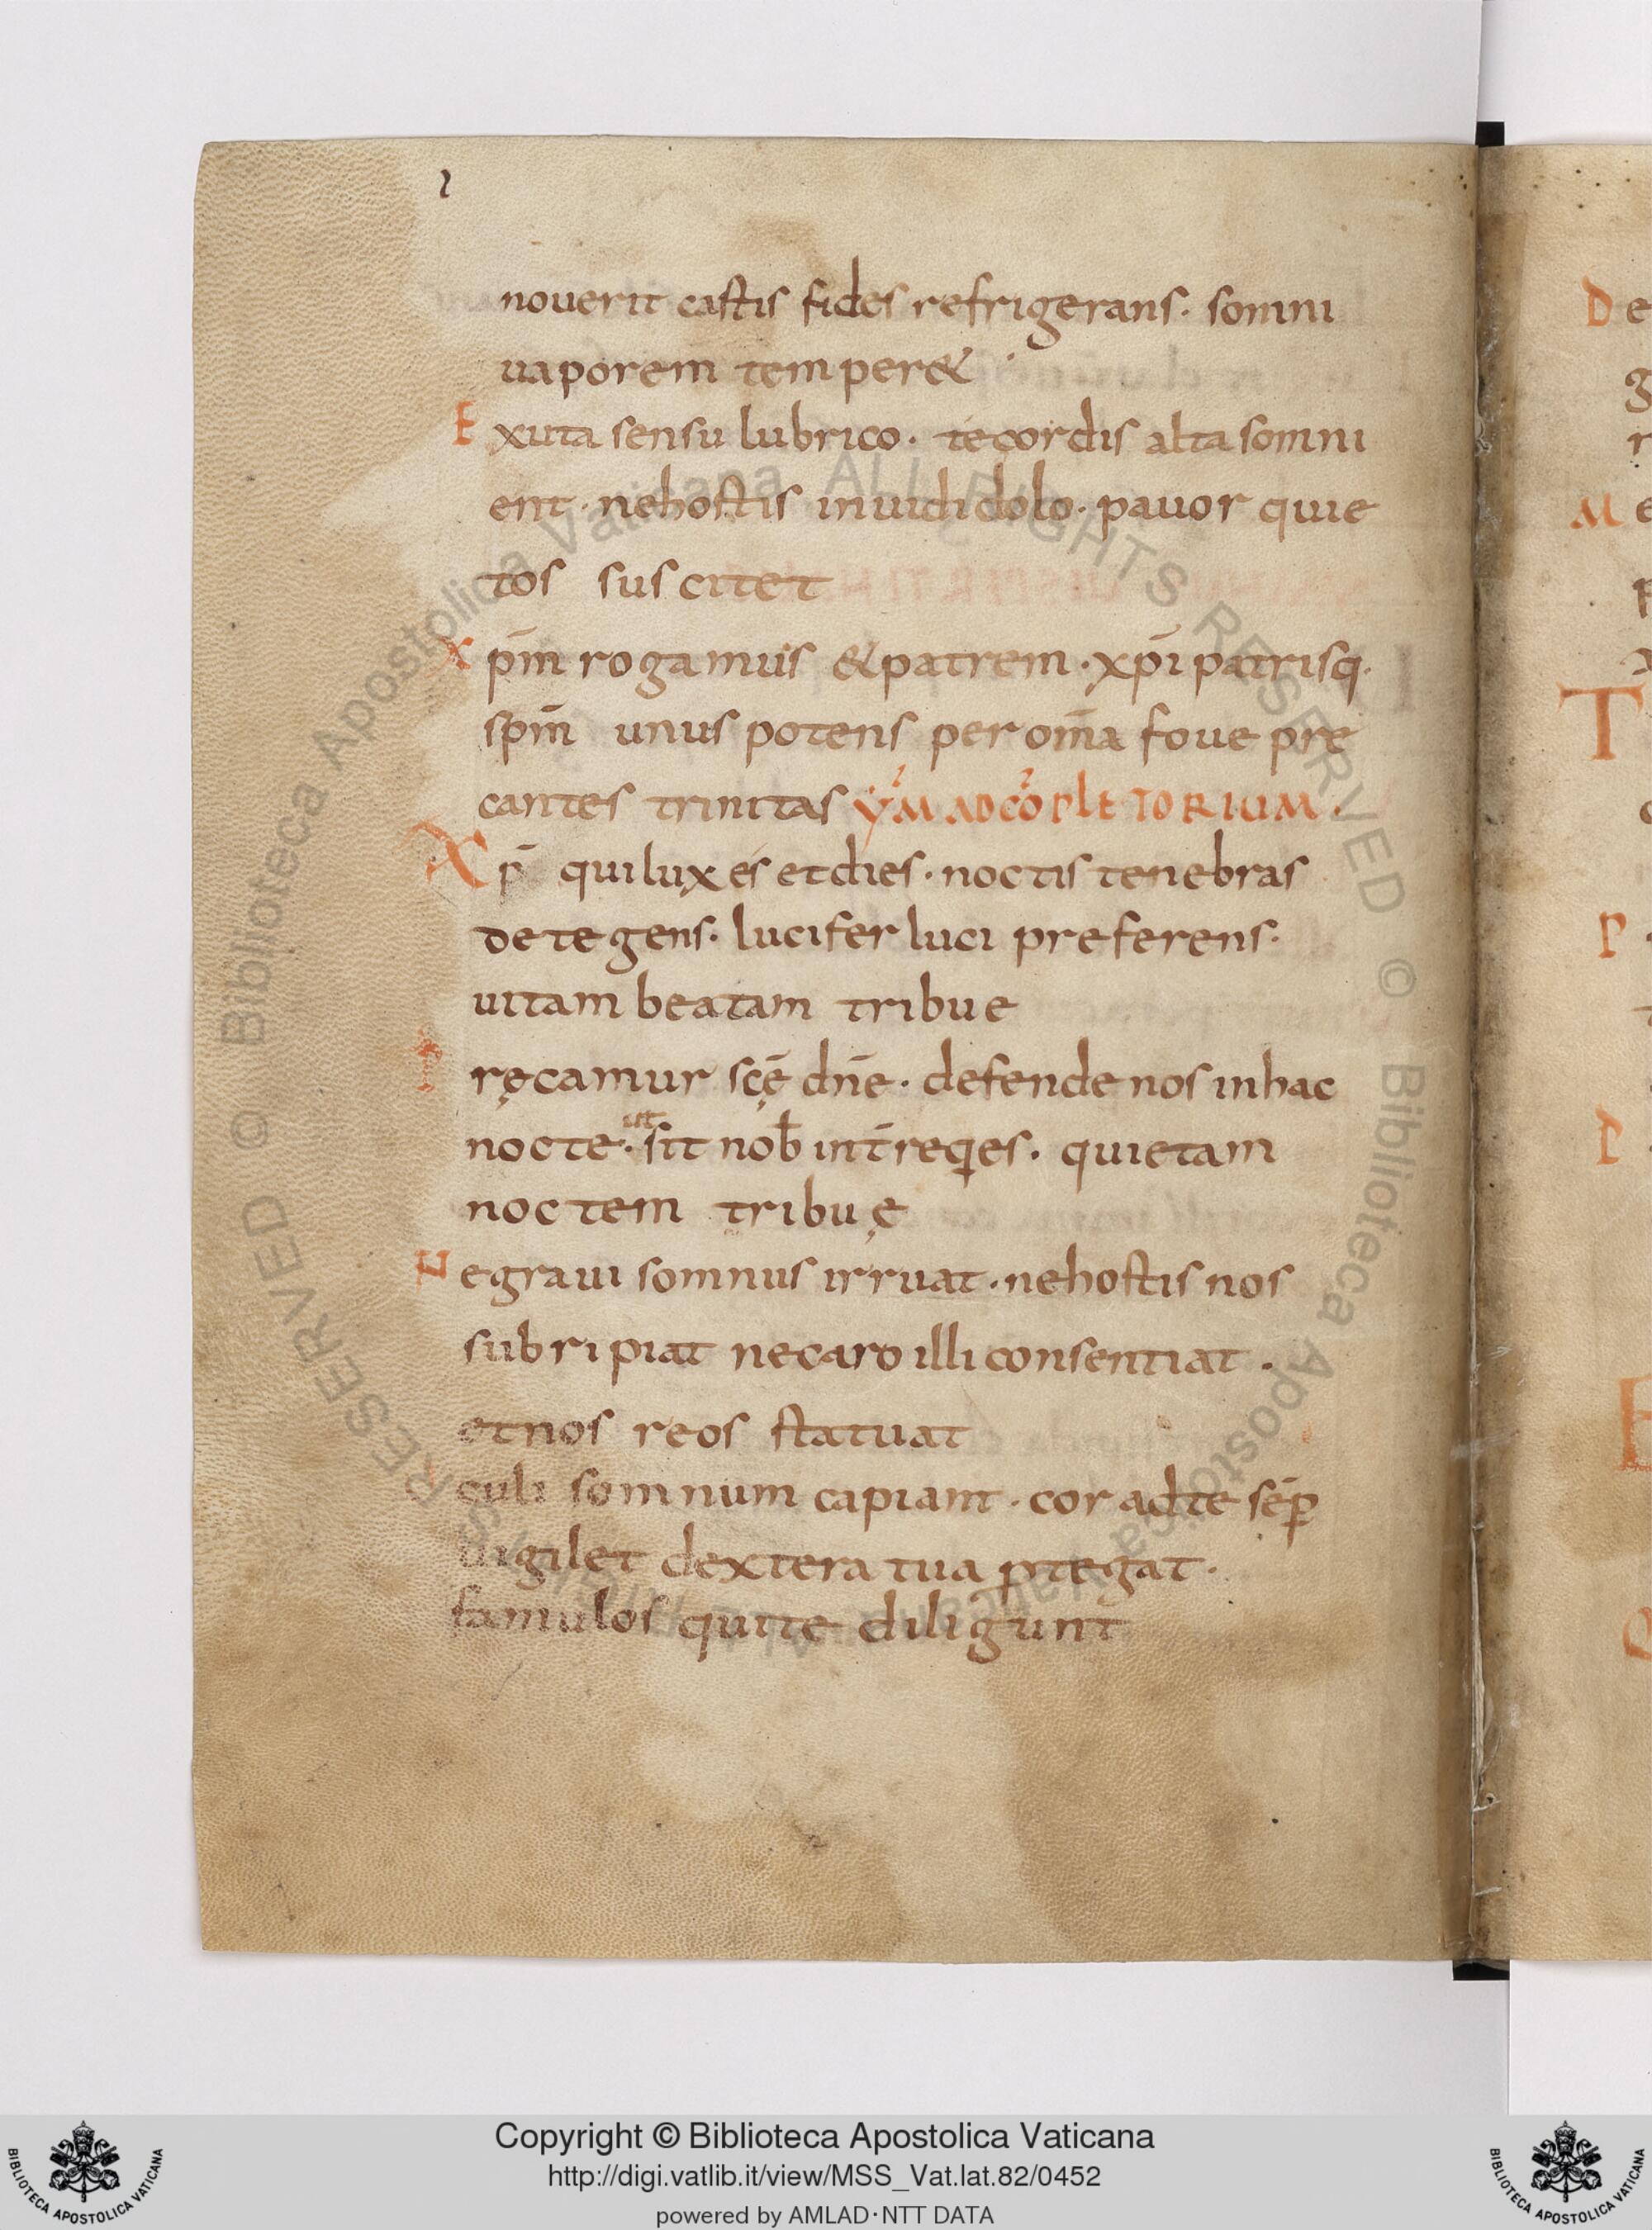 nouerit castis fides refrigerans· somni
uaporem temper&
Exuta sensu lubrico· te cordis alta somni
ent· ne hostis inuidi dolo· pauor quie
tos suscitet
xpm̄ rogamus & patrem· xpī patrisq·
spm̄ unus potens per om̄a foue pre
cantes trinitas YM̄ AD CŌPLETORIUM·
Xpē qui lux es et dies· noctis tenebras
detegens· lucifer luci preferens·
uitam beatam tribue
Pręcamur scę̄ dn̄e· defende nos in hac
nocte· sit nob̄ int̄ reqies· quietam
noctem tribuę
Ne graui somnus irruat· ne hostis nos
subripiat ne caro illi consentiat·
et nos reos statuat
culi somnum capiant· cor ad te sēp
uigilet dextera tua ꝓtegat·
famulos qui te diligunt
De
M
T
P
P
E
O
Copyright © Biblioteca Apostolica Vaticana
http://digi.vatlib.it/view/MSS_Vat.lat.82/0452
powered by AMLAD·NTT DATA
BIBLIOTECA APOSTOLICA VATICANA
BIBLIOTECA APOSTOLICA VATICANA